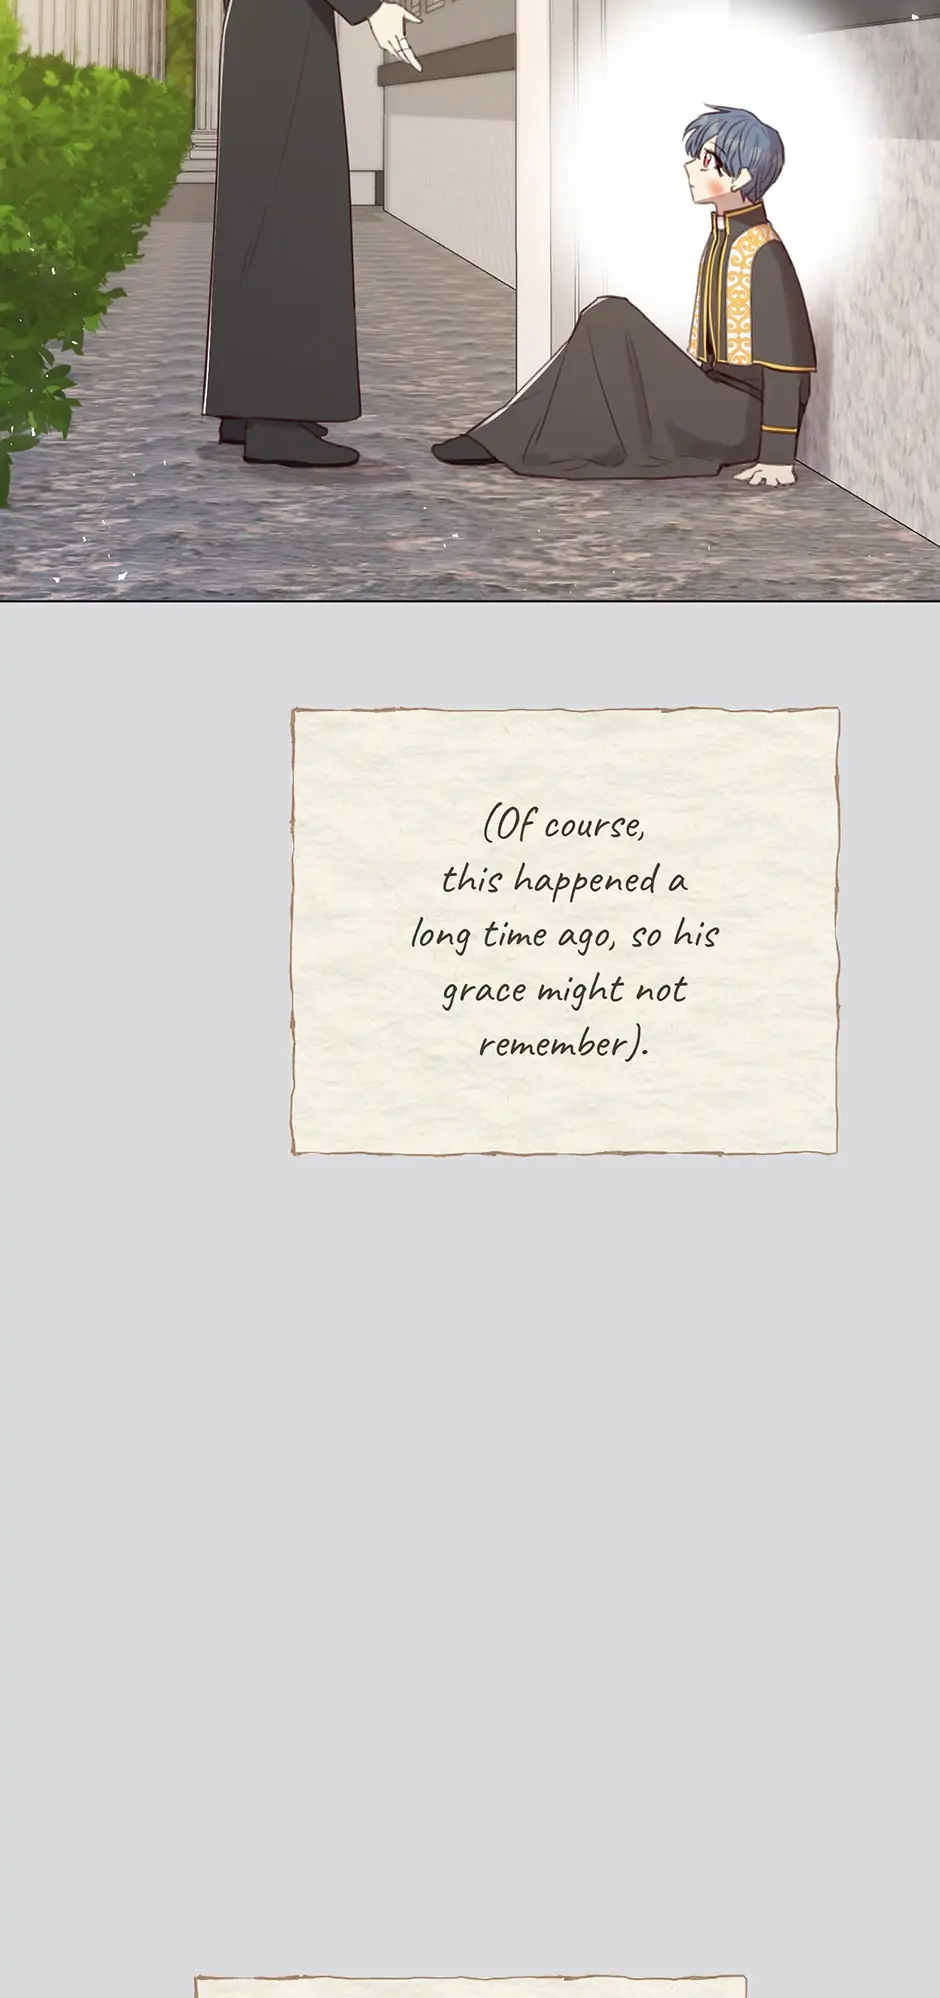 (Of course,
this happened a
long time ago, so his
grace might not
remember).